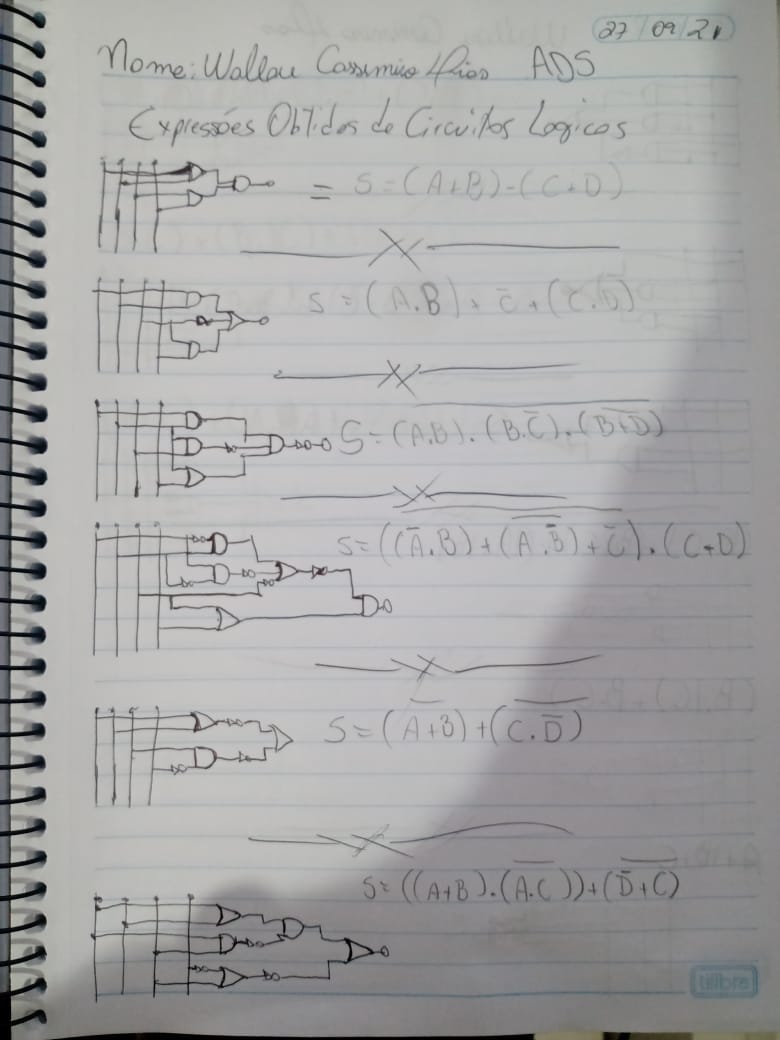 27/09/21
Nome: Wallace Cassimiro ADS
Expressões Obtidos de Circuitos Logicos
= S = (A+B)-(C+D)
S = (A.B) + C̅ + (C.D̅)
S = (A.B).(B.C̅).(B+D)
S = ((A̅.B)+(A.B̅)+C̅).(C+D)
S = (A+B)+(C.D̅)
S = ((A+B).(A.C))+(D̅+C)
tilibra